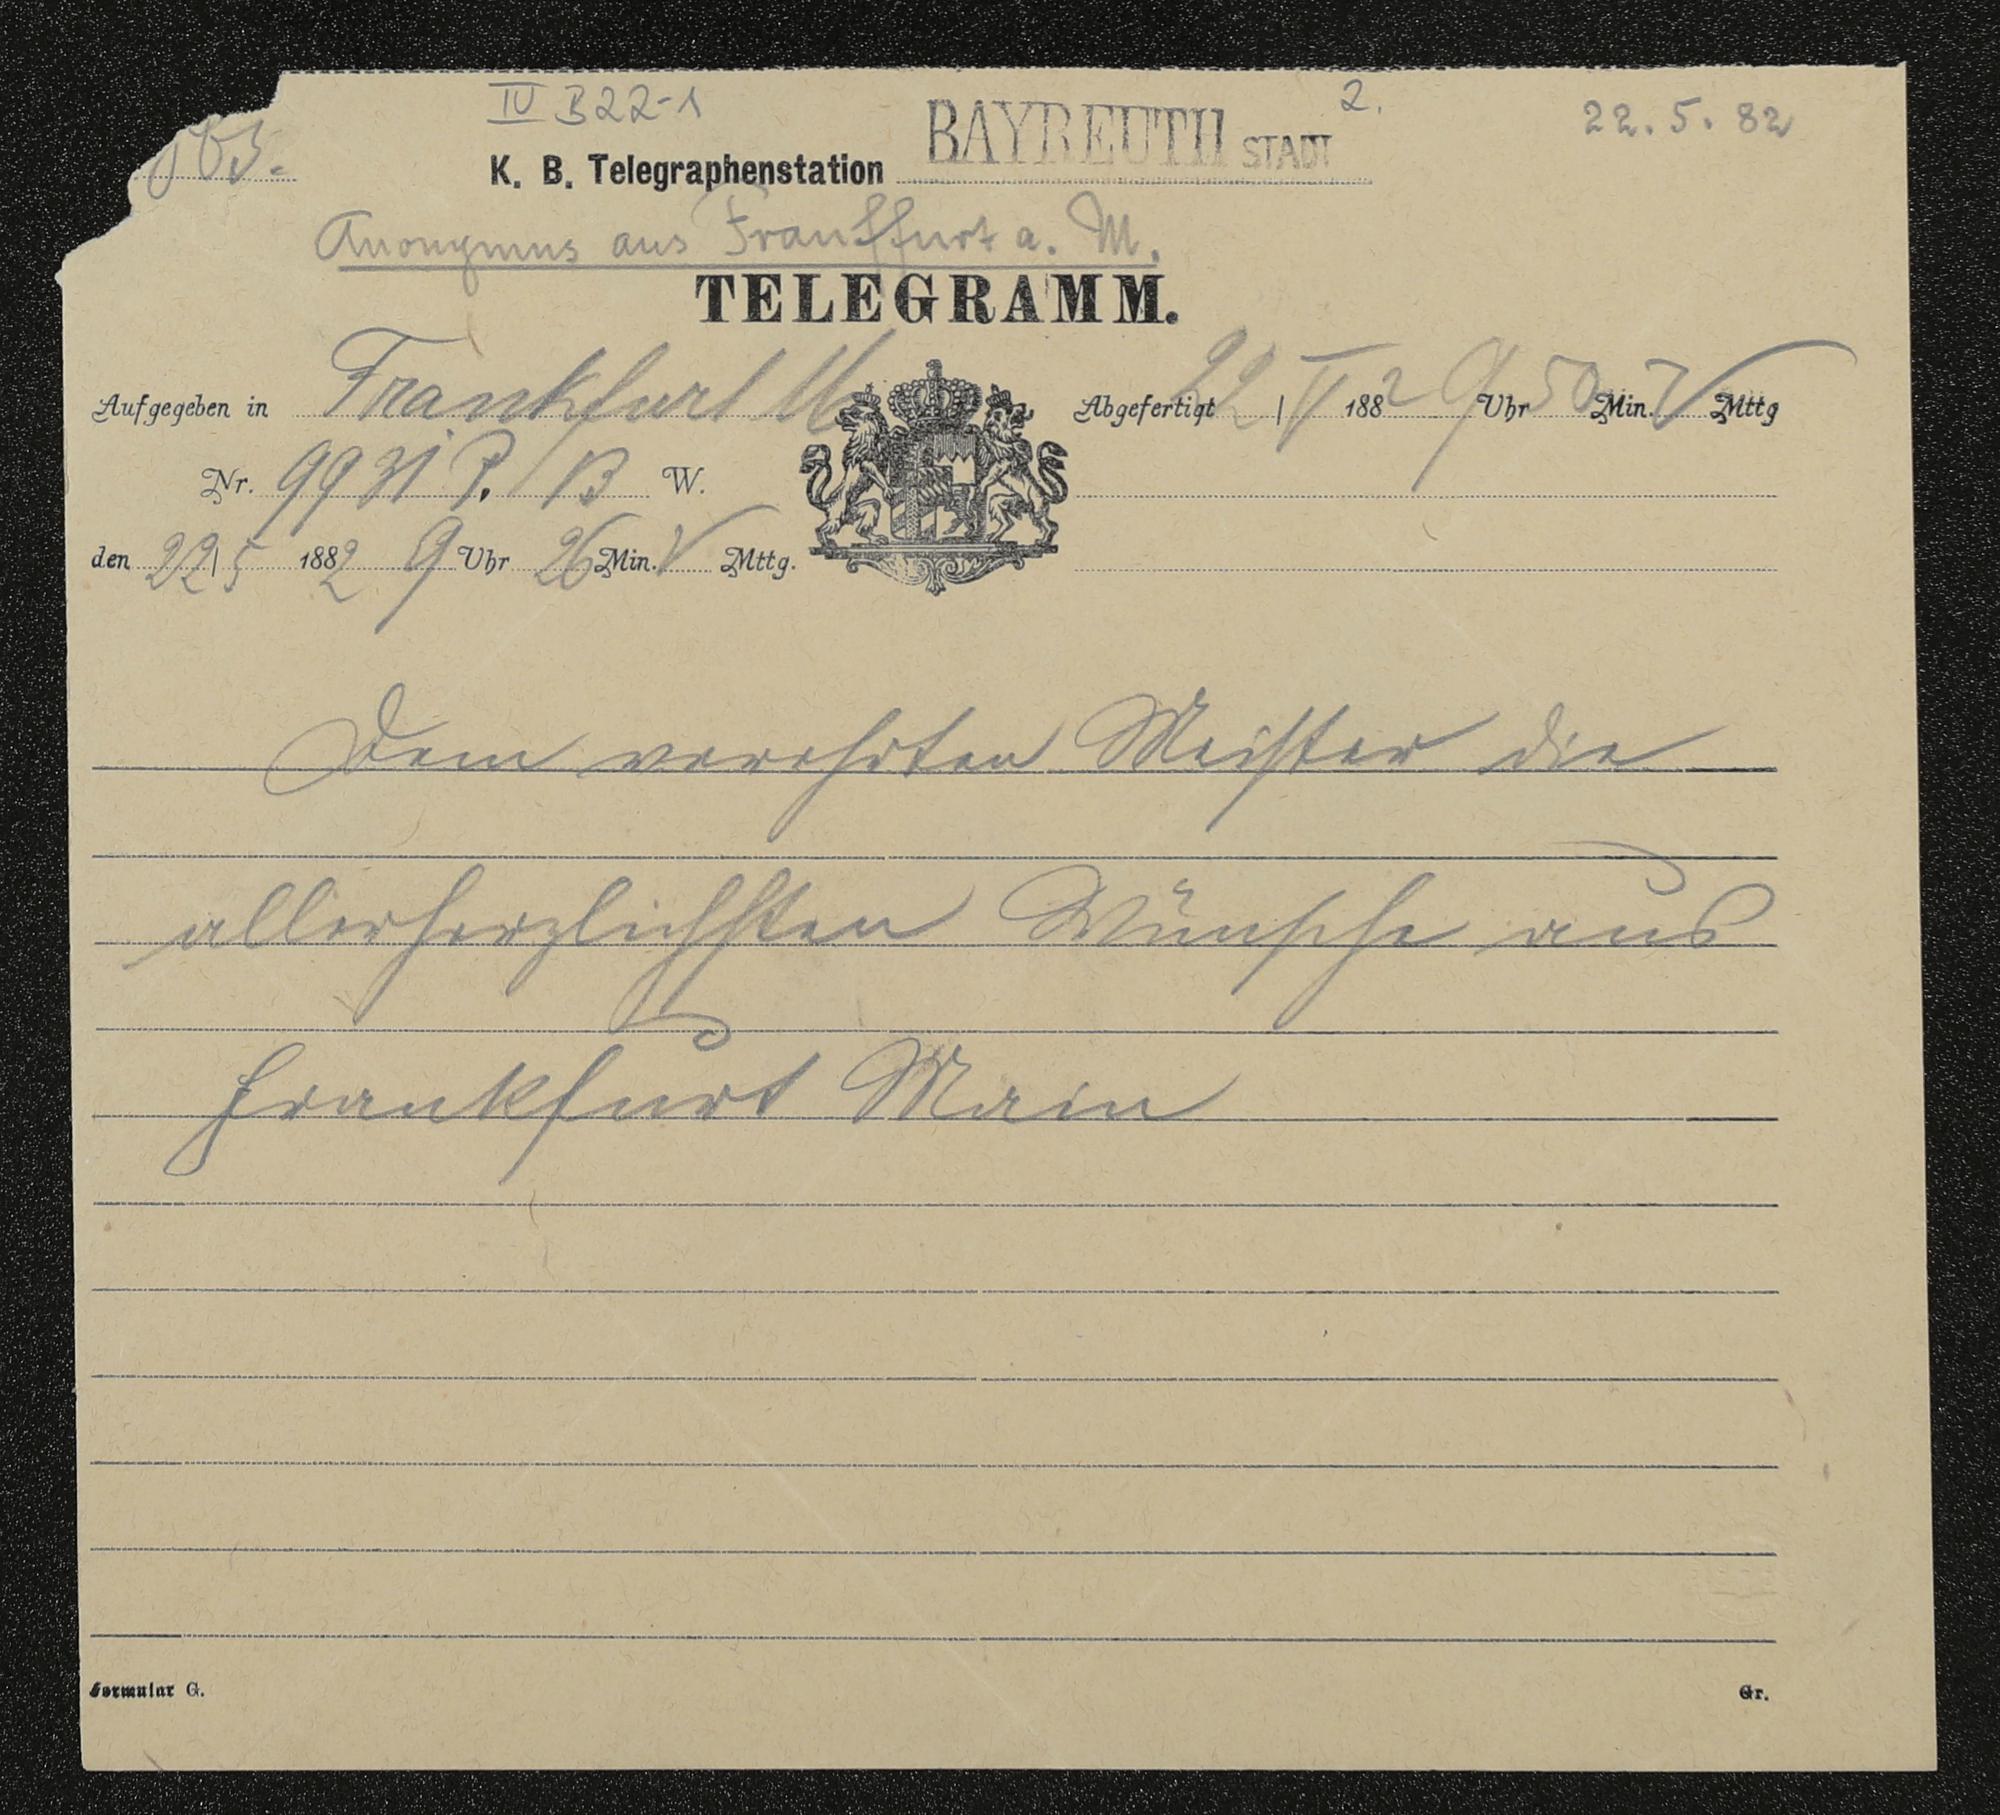 IV B 22-1
2.
22.5.82
K. B. Telegraphenstation BAYREUTH STADT
Anonymus aus Frankfurt a. M.
TELEGRAMM.
Aufgegeben in Frankfurt M
Abgefertigt 22 / V 1882 9 Uhr 50 Min. V Mttg
Nr. 9931 P. 13 W.
den 22/5 1882 9 Uhr 26 Min. V Mttg.
Dem verehrten Meister die
allerherzlichsten Wünsche aus
Frankfurt Main
Formular G.
Gr.